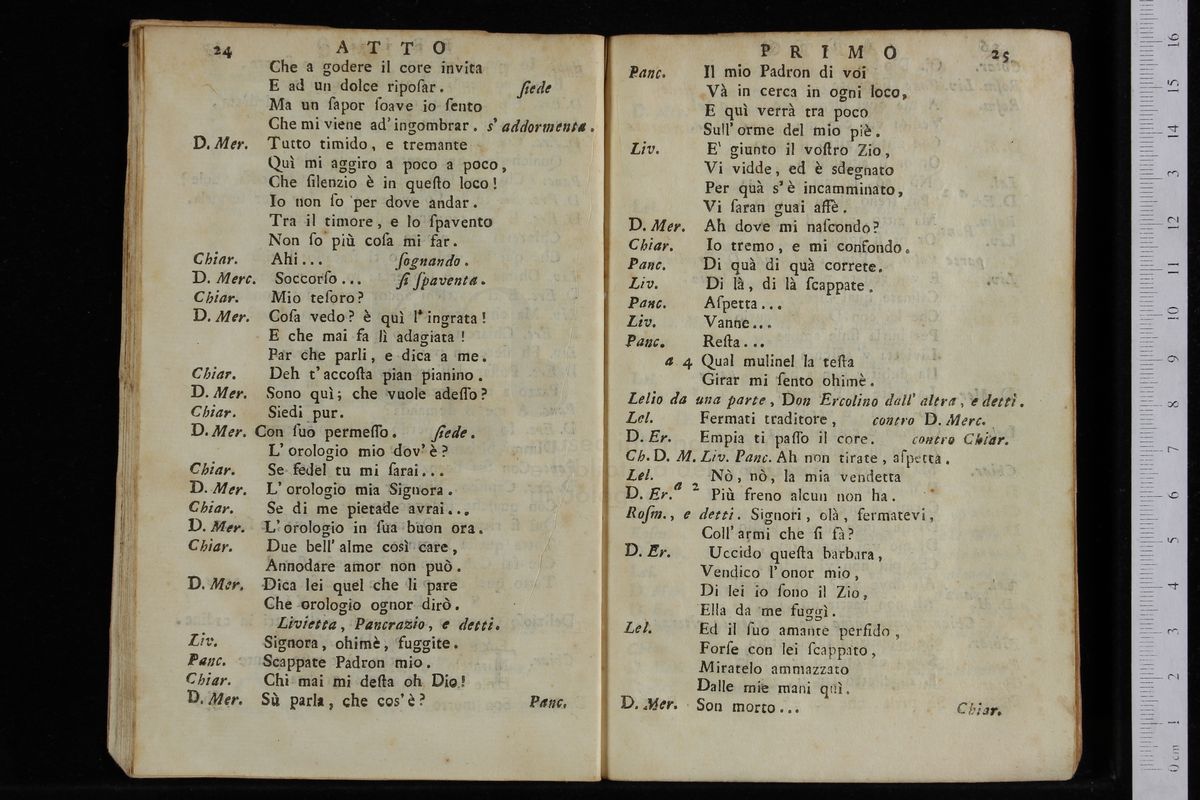 24 ATTO
Che a godere il core invita
E ad un dolce ripoſar. ſiede
Ma un ſapor ſoave io ſento
Che mi viene ad' ingombrar. s' addormenta.
D. Mer. Tutto timido, e tremante
Quì mi aggiro a poco a poco,
Che ſilenzio è in queſto loco!
Io non ſo per dove andar.
Tra il timore, e lo ſpavento
Non ſo più coſa mi far.
Chiar. Ahi... ſognando.
D. Merc. Soccorſo... ſi ſpaventa.
Chiar. Mio teſoro?
D. Mer. Coſa vedo? è quì l' ingrata!
E che mai fa lì adagiata!
Par che parli, e dica a me.
Chiar. Deh t' accoſta pian pianino.
D. Mer. Sono quì; che vuole adeſſo?
Chiar. Siedi pur.
D. Mer. Con ſuo permeſſo. ſiede.
L' orologio mio dov' è?
Chiar. Se fedel tu mi ſarai...
D. Mer. L' orologio mia Signora.
Chiar. Se di me pietade avrai...
D. Mer. L' orologio in ſua buon ora.
Chiar. Due bell' alme così care,
Annodare amor non può.
D. Mer. Dica lei quel che li pare
Che orologio ognor dirò.
Livietta, Pancrazio, e detti.
Liv. Signora, ohimè, fuggite.
Panc. Scappate Padron mio.
Chiar. Chi mai mi deſta oh Dio!
D. Mer. Sù parla, che cos' è? Panc.
PRIMO 25
Panc. Il mio Padron di voi
Và in cerca in ogni loco,
E quì verrà tra poco
Sull' orme del mio piè.
Liv. E' giunto il voſtro Zio,
Vi vidde, ed è sdegnato
Per quà s' è incamminato,
Vi ſaran guai affè.
D. Mer. Ah dove mi naſcondo?
Chiar. Io tremo, e mi confondo.
Panc. Di quà di quà correte.
Liv. Di là, di là ſcappate.
Panc. Aſpetta...
Liv. Vanne...
Panc. Reſta...
a 4 Qual mulinel la teſta
Girar mi ſento ohimè.
Lelio da una parte, Don Ercolino dall' altra, e detti.
Lel. Fermati traditore, contro D. Merc.
D. Er. Empia ti paſſo il core. contro Chiar.
Ch. D. M. Liv. Panc. Ah non tirate, aſpetta.
Lel. Nò, nò, la mia vendetta
D. Er. a 2 Più freno alcun non ha.
Roſm., e detti. Signori, olà, fermatevi,
Coll' armi che ſi fà?
D. Er. Uccido queſta barbara,
Vendico l' onor mio,
Di lei io ſono il Zio,
Ella da me fuggì.
Lel. Ed il ſuo amante perfido,
Forſe con lei ſcappato,
Miratelo ammazzato
Dalle mie mani quì.
D. Mer. Son morto... Chiar.
0 cm 1 2 3 4 5 6 7 8 9 10 11 12 13 14 15 16